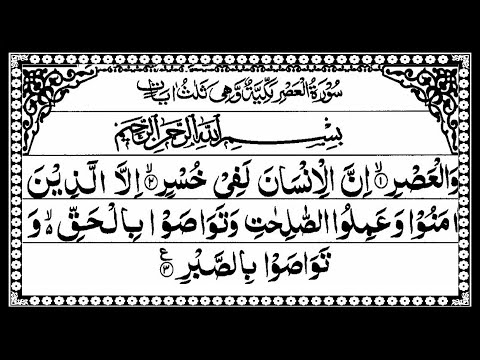 سُوْرَةُ الْعَصْرِ مَكِّيَّةٌ وَّهِیَ ثَلٰثُ اٰیٰتٍ
بِسْمِ اللّٰهِ الرَّحْمٰنِ الرَّحِیْمِ
وَالْعَصْرِۙ۝۱ اِنَّ الْاِنْسَانَ لَفِیْ خُسْرٍۙ۝۲ اِلَّا الَّذِیْنَ
اٰمَنُوْا وَعَمِلُوا الصّٰلِحٰتِ وَتَوَاصَوْا بِالْحَقِّ ۙ۬ وَ
تَوَاصَوْا بِالصَّبْرِ۠۝۳ ع